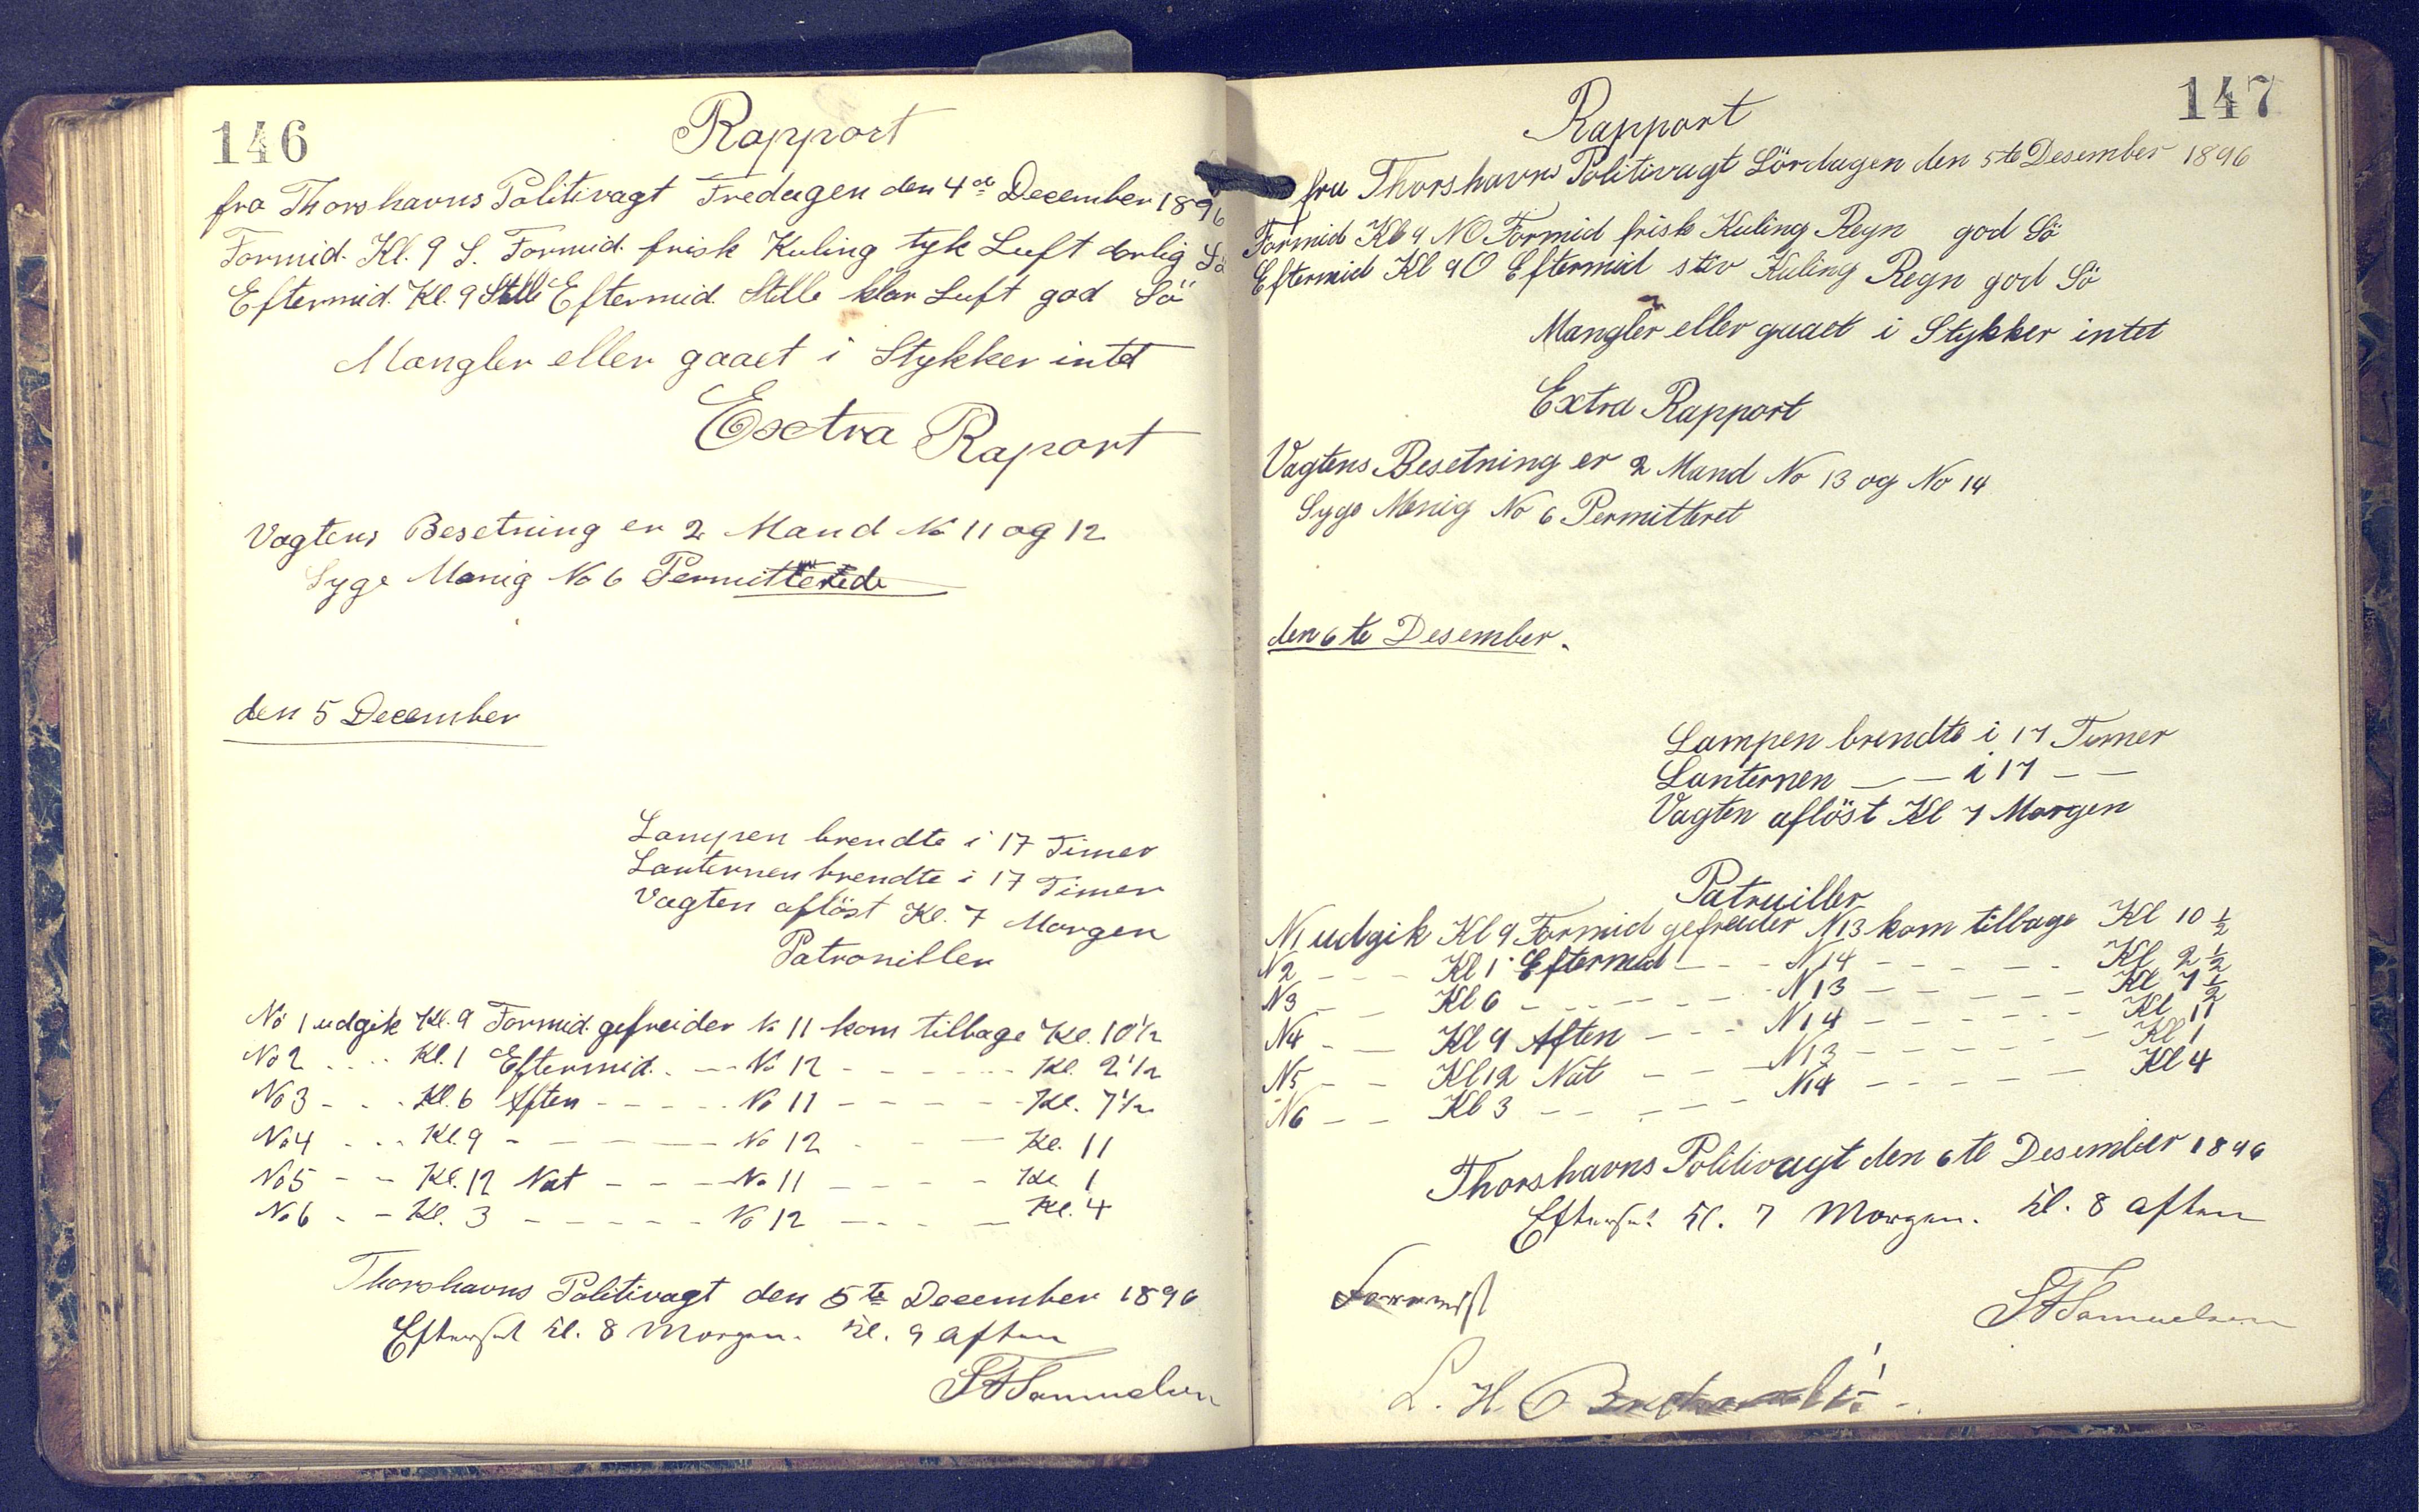 146
Rapport
fra Thorshavns Politivagt Fredagen den 4de December 1896
Formid. Kl. 9 S. Formid. frisk Kuling tyk Luft dorlig Sö
Eftermid. Kl. 9 Stille Eftermid. Stille klar Luft god Sö
Mangler eller gaaet i Stykker intet
Exctra Raport
Vagtens Besetning er 2 Mand No 11 og 12
Syge Menig No 6 Permitterede
den 5 December
Lampen brendte i 17 Timer
Lanternen brendte i 17 Timer
Vagten aflöst Kl. 7 Morgen
Patroniller
No 1 udgik Kl. 9 Formid. gefreider No 11 kom tilbage Kl. 10 1/2
No 2 - - - Kl. 1 Eftermid. - - No 12 - - - - - - Kl. 2 1/2
No 3 - - - Kl. 6 Aften - - - - - No 11 - - - - - - Kl. 7 1/2
No 4 - - - Kl. 9 - - - - - No 12 - - - Kl. 11
No 5 - - Kl. 12 Nat - - - - No 11 - - - - - Kl. 1
No 6 - - Kl. 3 - - - - - No 12 - - - - Kl. 4
Thorshavns Politivagt den 5te December 1896
Efterset Kl. 8 Morgen. Kl. 9 Aften
Samuelsen
147
Rapport
fra Thorshavns Politivagt Lördagen den 5te Desember 1896
Formid Kl 9 NO Formid frisk Kuling Regn god Sö
Eftermid Kl 9 O Eftermid stiv Kuling Regn god Sö
Mangler eller gaaet i Stykker intet
Extra Rapport
Vagtens Besetning er 2 Mand No 13 og No 14
Syge Menig No 6 Permitteret
den 6te Desember.
Lampen brendte i 17 Timer
Lanternen - - i 17 - -
Vagten aflöst Kl 7 Morgen
Patruiller
N1 udgik Kl 9 Formid gefreider N13 kom tilbage Kl 10 1/2
N2 - - - Kl 1 Eftermid - - - N14 - - - - - Kl 2 1/2
N3 - - Kl 6 - - - - - - N13 - - - - - - Kl 7 1/2
N4 - - Kl 9 Aften - - - N14 - - - - - - Kl 11
N5 - - Kl 12 Nat - - - N13 - - - - - - Kl 1
N6 - - Kl 3 - - - - - N14 - - - - - Kl 4
Thorshavns Politivagt den 6te Desember 1896
Efterset Kl. 7 Morgen. Kl. 8 Aften
Samuelsen
L. H.